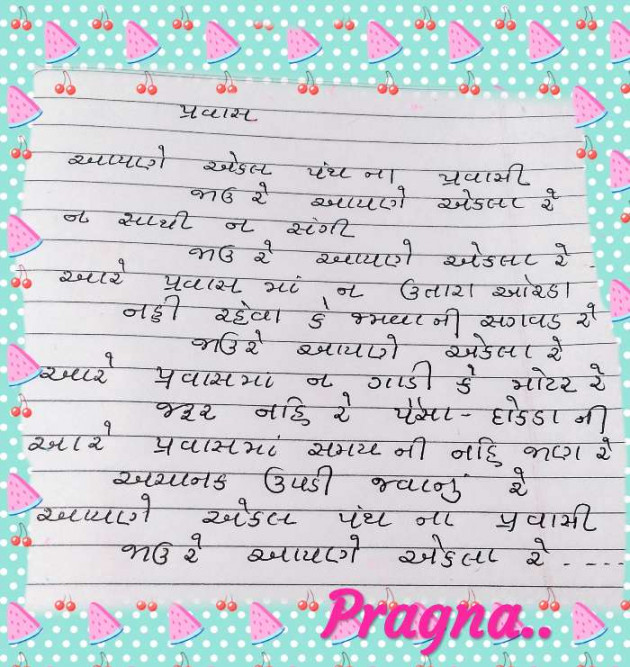 પ્રવાસ
આપણે એકલ પંથ ના પ્રવાસી
જાઉ રે આપણે એકલા રે
ન સાથી ન સંગી
જાઉ રે આપણે એકલા રે ..
આરે પ્રવાસ માં ન ઉતારા ઓરડા
નહી રહેવા કે જમવા ની સગવડ રે
જાઉ રે આપણે એકલા રે
આરે પ્રવાસમાં ન ગાડી કે મોટર રે
જરૂર નહિ રે પૈસા - દોકડા ની
આ રે પ્રવાસમાં સમય ની નહિ જાણ રે
અચાનક ઉપડી જવાનું રે
આપણે એકલ પંથ ના પ્રવાસી
જાઉ રે આપણે એકલા રે ....
Pragna..